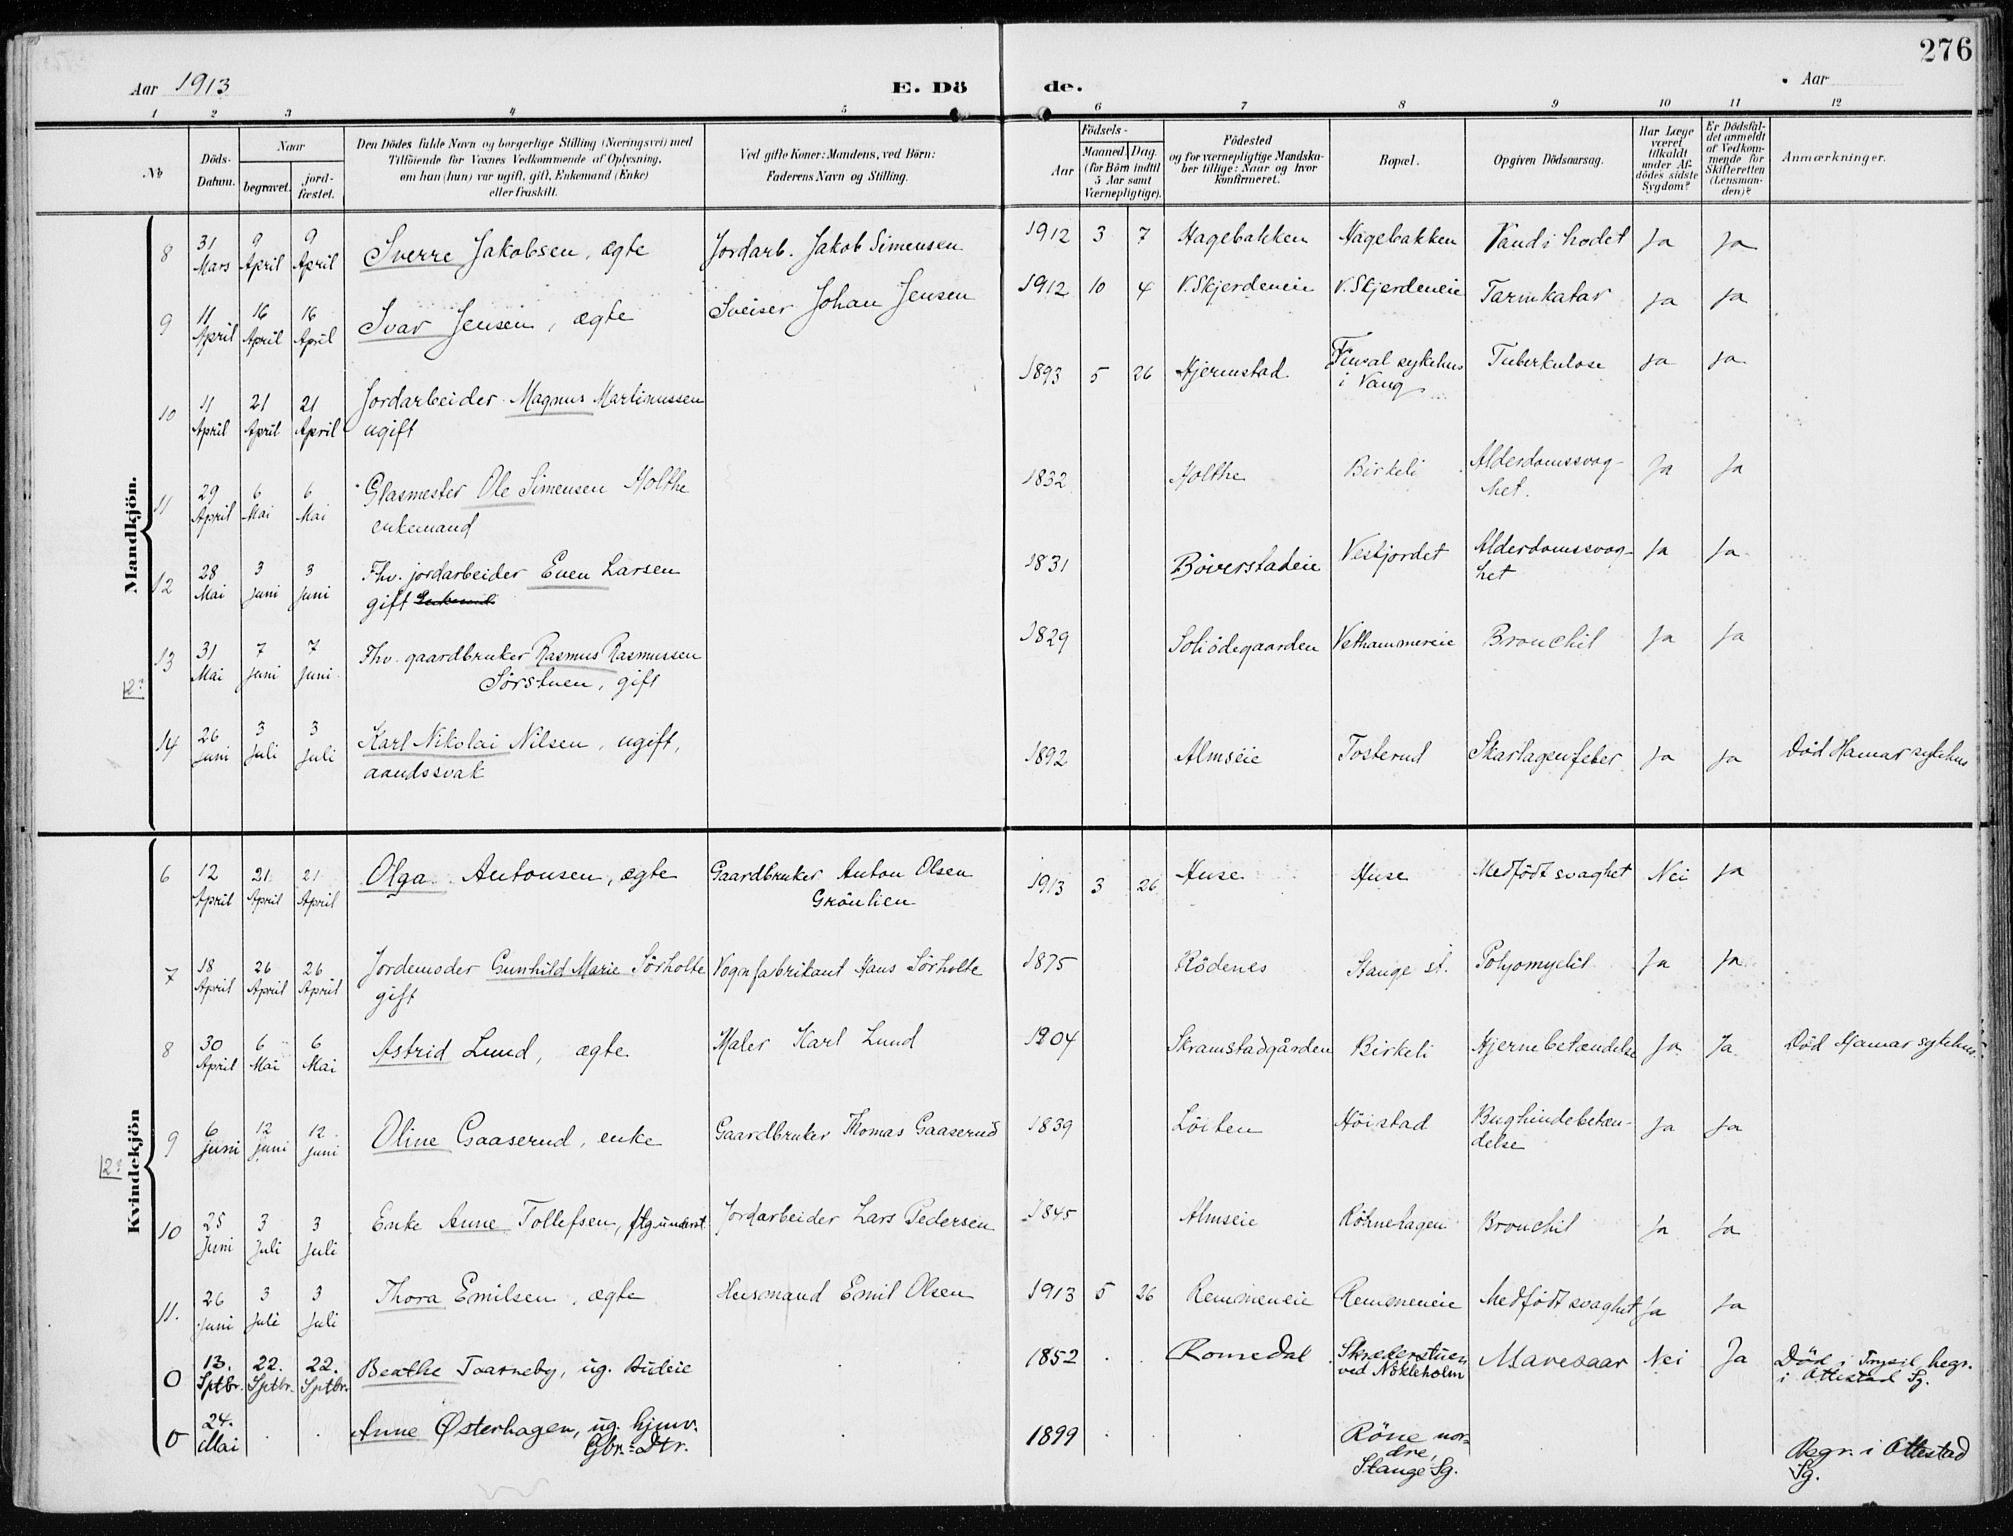 276
Aar 1913 E. Dö de. Aar
1 2 3 4 5 6 7 8 9 10 11 12
No
Döds-
Datum.
Naar
begravet.
jord-
fæstet.
Den Dödes fulde Navn og borgerlige Stilling (Næringsvei) med
Tilföiende for Voxnes Vedkommende af Oplysning,
om han (hun) var ugift, gift, Enkemand (Enke)
eller fraskilt.
Ved gifte Koner: Mandens, ved Börn:
Faderens Navn og Stilling.
Födsels-
Aar
Maaned. Dag.
(for Börn indtil
5 Aar samt
Værnepligtige).
Födested
og for værnepligtige Mandska-
ber tillige: Naar og hvor
Konfirmeret.
Bopæl.
Opgiven Dödsaarsag.
Har Læge
været
tilkaldt
under Af-
dödes sidste
Sygdom?
Er Dödsfal-
det anmeldt
af Vedkom-
mende for
Skifteretten
(Lensman-
den)?
Anmærkninger.
Mandkjön.
8 31 Mars 9 April 9 April Sverre Jakobsen, ægte Jordarb. Jakob Simensen 1912 3 7 Hagebakken Hagebakken Vand i hodet Ja Ja
9 11 April 16 April 16 April Ivar Jensen, ægte Sveiser Johan Jensen 1912 10 4 V. Skjerdeneie V. Skjerdeneie Tarmkatar Ja Ja
10 11 April 21 April 21 April Jordarbeider Magnus Martinussen 1893 5 26 Hjermstad Finsal sykehus Tuberkulose Ja Ja
ugift i Vang
11 29 April 6 Mai 6 Mai Glasmester Ole Simensen Holthe 1832 Holthe Birkeli Alderdomssvag- Ja Ja
enkemand het.
12 28 Mai 3 Juni 3 Juni Fhv. jordarbeider Even Larsen 1831 Böverstadeie Vestjordet Alderdomssvag- Ja Ja
gift het
13 31 Mai 7 Juni 7 Juni Fhv. gaardbruker Rasmus Rasmussen 1829 Soliödegaarden Vethammereie Bronchit Ja Ja
2? Sörstuen, gift
14 26 Juni 3 Juli 3 Juli Karl Nikolai Nilsen, ugift, 1892 Almseie Tosterud Skarlagensfeber Ja Ja Död Hamar sykehus
aandssvak
Kvindekjön
6 12 April 21 April 21 April Olga Antonsen, ægte Gaardbruker Anton Olsen 1913 3 26 Huse Huse Medfödt svaghet Nei Ja
Grönlien
7 18 April 26 April 26 April Jordemoder Gunhild Marie Sörholte Vognfabrikant Hans Sörholte 1875 Rödenes Stange st. Polyomyelit Ja Ja
gift
8 30 April 6 Mai 6 Mai Astrid Lund, ægte Maler Karl Lund 1904 Skramstadgården Birkeli Hjernebetændelse Ja Ja Död Hamar sykehus
9 6 Juni 12 Juni 12 Juni Oline Gaaserud, enke Gaardbruker Thomas Gaaserud 1839 Löiten Höistad Bughindebetæn- Ja Ja
2? delse
10 25 Juni 3 Juli 3 Juli Enke Anne Tollefsen, ftgunderst. Jordarbeider Lars Pedersen 1845 Almseie Röhnehagen Bronchit Ja Ja
11. 26 Juni 3 Juli 3 Juli Thora Emilsen, ægte Husmand Emil Olsen 1913 5 26 Remmeneie Remmeneie Medfödt svaghet Ja Ja
0 13. Sptbr. 22. Sptbr. 22. Sptbr. Beathe Taarneby, ug. 1852 Romedal Skræderstuen Mavesaar Nei Ja Död i Trysil, begr.
ved Nökleholm i Ottestad Sg.
0 24. Mai Anne Østerhagen, ug. hjmv. 1899 Röne nor-
Gbr.-Dtr. dre,
Stange Sg. Begr. i Ottestad
Sg.